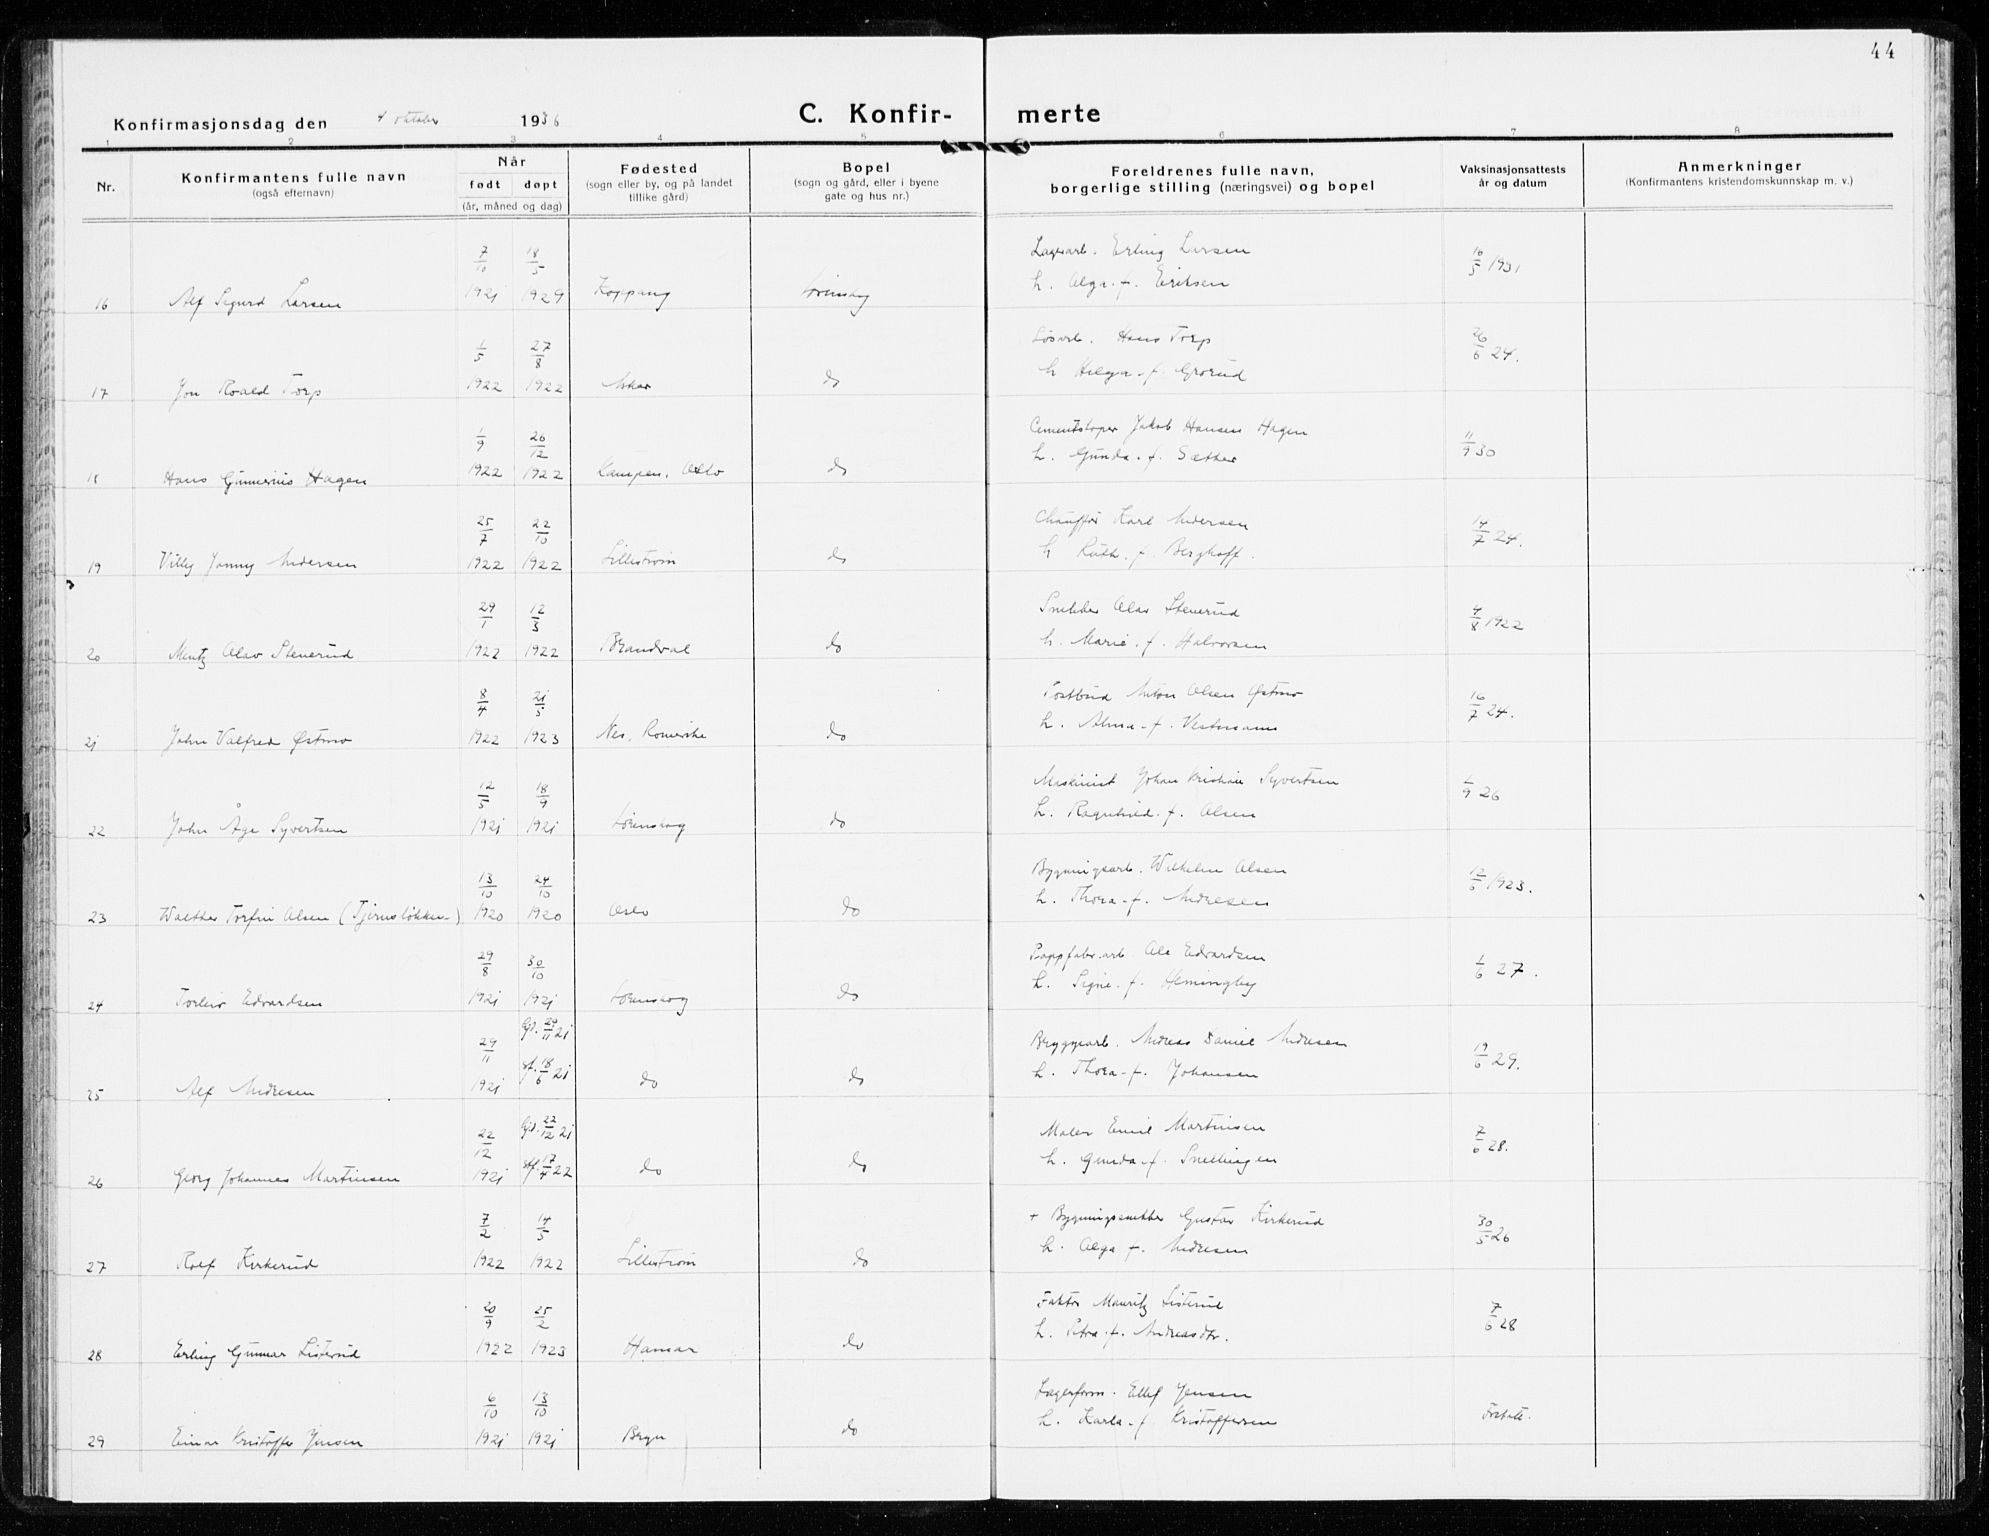 44
Konfirmasjonsdag den 4 oktober 1936
C. Konfir- merte
1 2 3 4 5 6 7 8
Nr.
Konfirmantens fulle navn
(også efternavn)
Når
født døpt
(år, måned og dag)
Fødested
(sogn eller by, og på landet
tillike gård)
Bopel
(sogn og gård, eller i byene
gate og hus nr.)
Foreldrenes fulle navn,
borgerlige stilling (næringsvei) og bopel
Vaksinasjonsattests
år og datum
Anmerkninger
(Konfirmantens kristendomskunnskap m. v.)
7/10 18/5 Lagerarb. Erling Larsen 16/5 1931
16 Alf Sigurd Larsen 1921 1929 Koppang Lørenskog h. Olga f. Eriksen
1/5 27/8 Løsarb. Hans Torp 26/6 24.
17 Jon Roald Torp 1922 1922 Asker do h Helga f. Grorud
1/9 26/12 Cementstøper Jakob Hansen Hagen 11/9 30
18 Hans Gunnerius Hagen 1922 1922 Kampen, Oslo do h. Gunda f. Sæther
25/7 22/10 Chauffør Karl Andersen 14/7 24.
19 Villy Jonny Andersen 1922 1922 Lillestrøm do h Ruth f. Berghoff.
29/1 12/3 Snekker Olav Stenerud 4/8 1922
20 Mentz Olav Stenerud 1922 1922 Brandval do h. Marie f. Halvorsen
8/4 21/5 Postbud Anton Olsen Østmo 16/7 24.
21 John Valfred Østmo 1922 1923 Nes, Romerike do h. Alma f. Vestmann
12/5 18/9 Maskinist Johan Kristian Syvertsen 1/9 26
22 John Åge Syvertsen 1921 1921 Lørenskog do h. Ragnhild f. Olsen
13/10 24/10 Bygningsarb. Wilhelm Olsen 12/6 1923.
23 Walther Torfin Olsen (Tjernsløkken) 1920 1920 Oslo do h. Thora f. Andresen
29/8 30/10 Pappfabr.arb. Ole Edvardsen 1/6 27.
24 Torleiv Edvardsen 1921 1921 Lørenskog do h. Signe f. Hemingby
29/11 Gd. 29/11 21 Bryggearb. Andreas Daniel Andresen 19/6 29.
25 Alf Andresen 1921 stf. 18/6 21 do do h. Thora f. Johansen
22/12 Gd. 22/12 21 Maler Emil Martinsen 7/6 28.
26 Georg Johannes Martinsen 1921 stf. 17/4 22 do do h. Gunda f. Snellingen
7/2 14/5 + Bygningssnekker Gustav Kirkerud 30/5 26
27 Rolf Kirkerud 1922 1922 Lillestrøm do h. Olga f. Andresen
20/9 25/2 Faktor Mauritz Listerud 7/6 28
28 Erling Gunnar Listerud 1922 1923 Hamar do h. Petra f. Andreasdtr.
6/10 13/10 Lagerform. Ellef Jensen
29 Einar Kristoffer Jensen 1921 1921 Bryn do h. Karla f. Kristoffersen